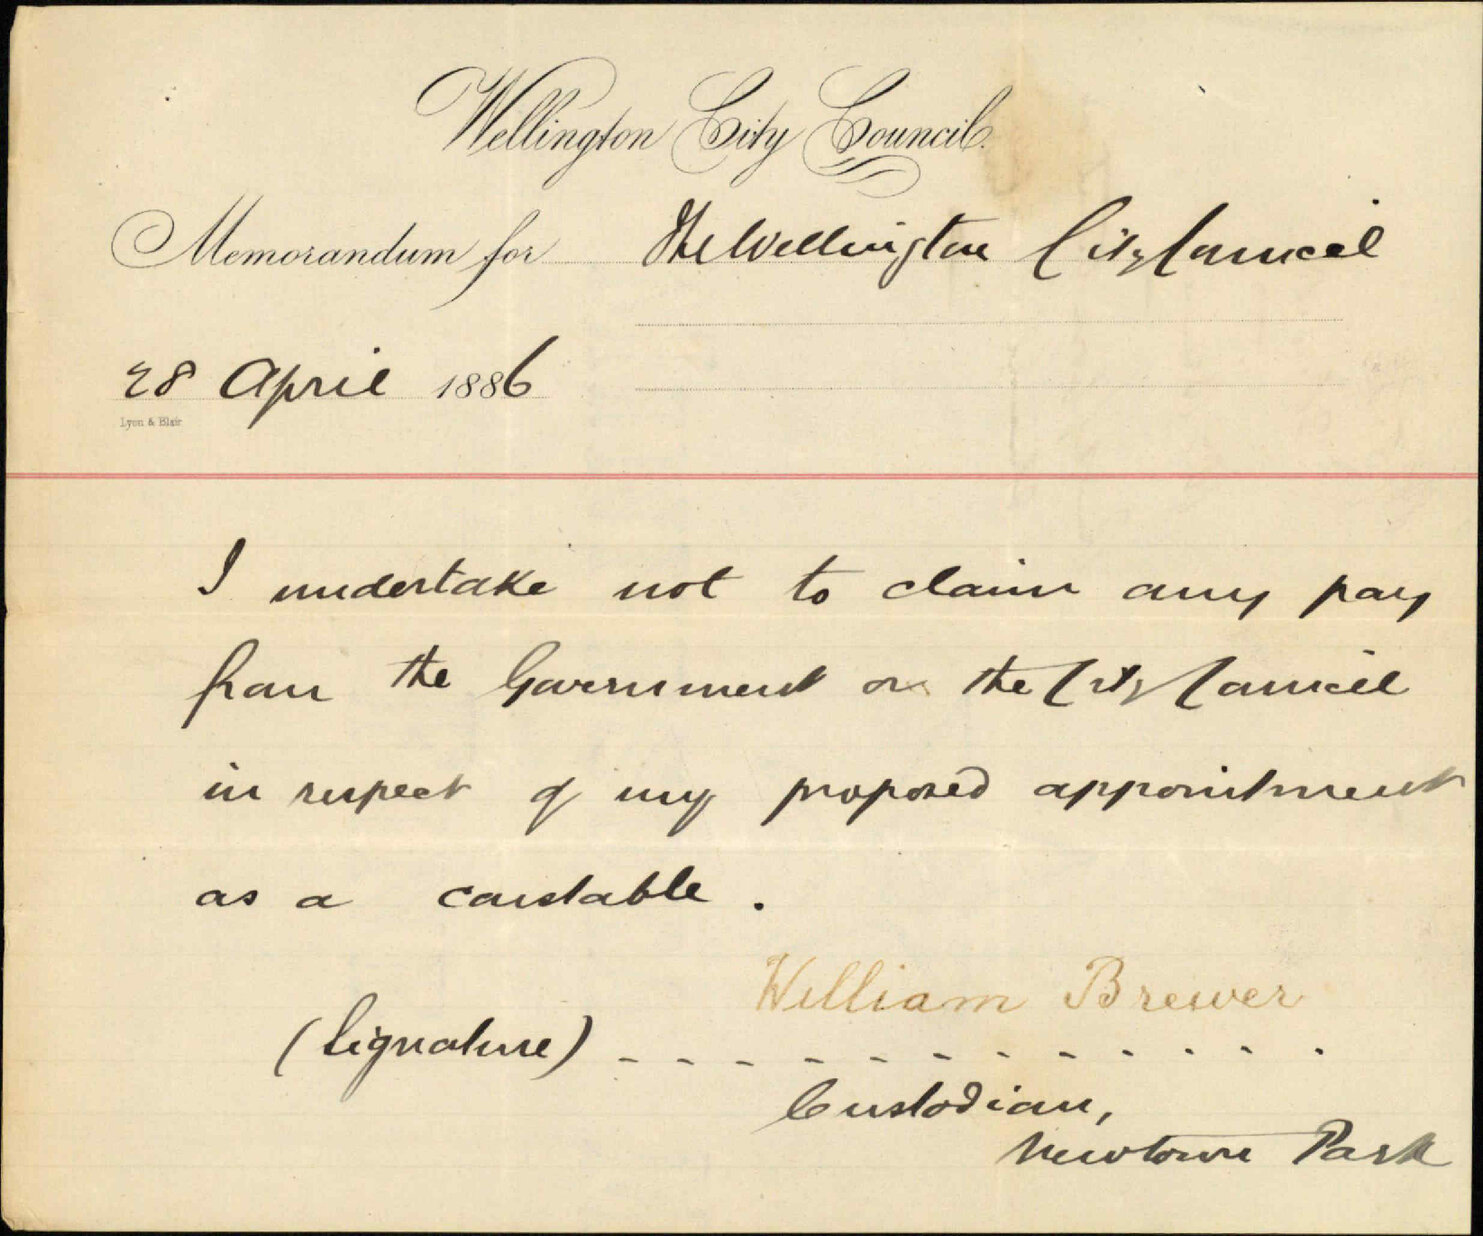 Wellington City Council.
Memorandum for The Wellington City Council
28 April 1886
Lyon & Blair
I undertake not to claim any pay
from the Government or the City Council
in respect of my proposed appointment
as a constable.
William Brewer
(Signature) - - - - - - - - - - - -
Custodian,
Newtown Park